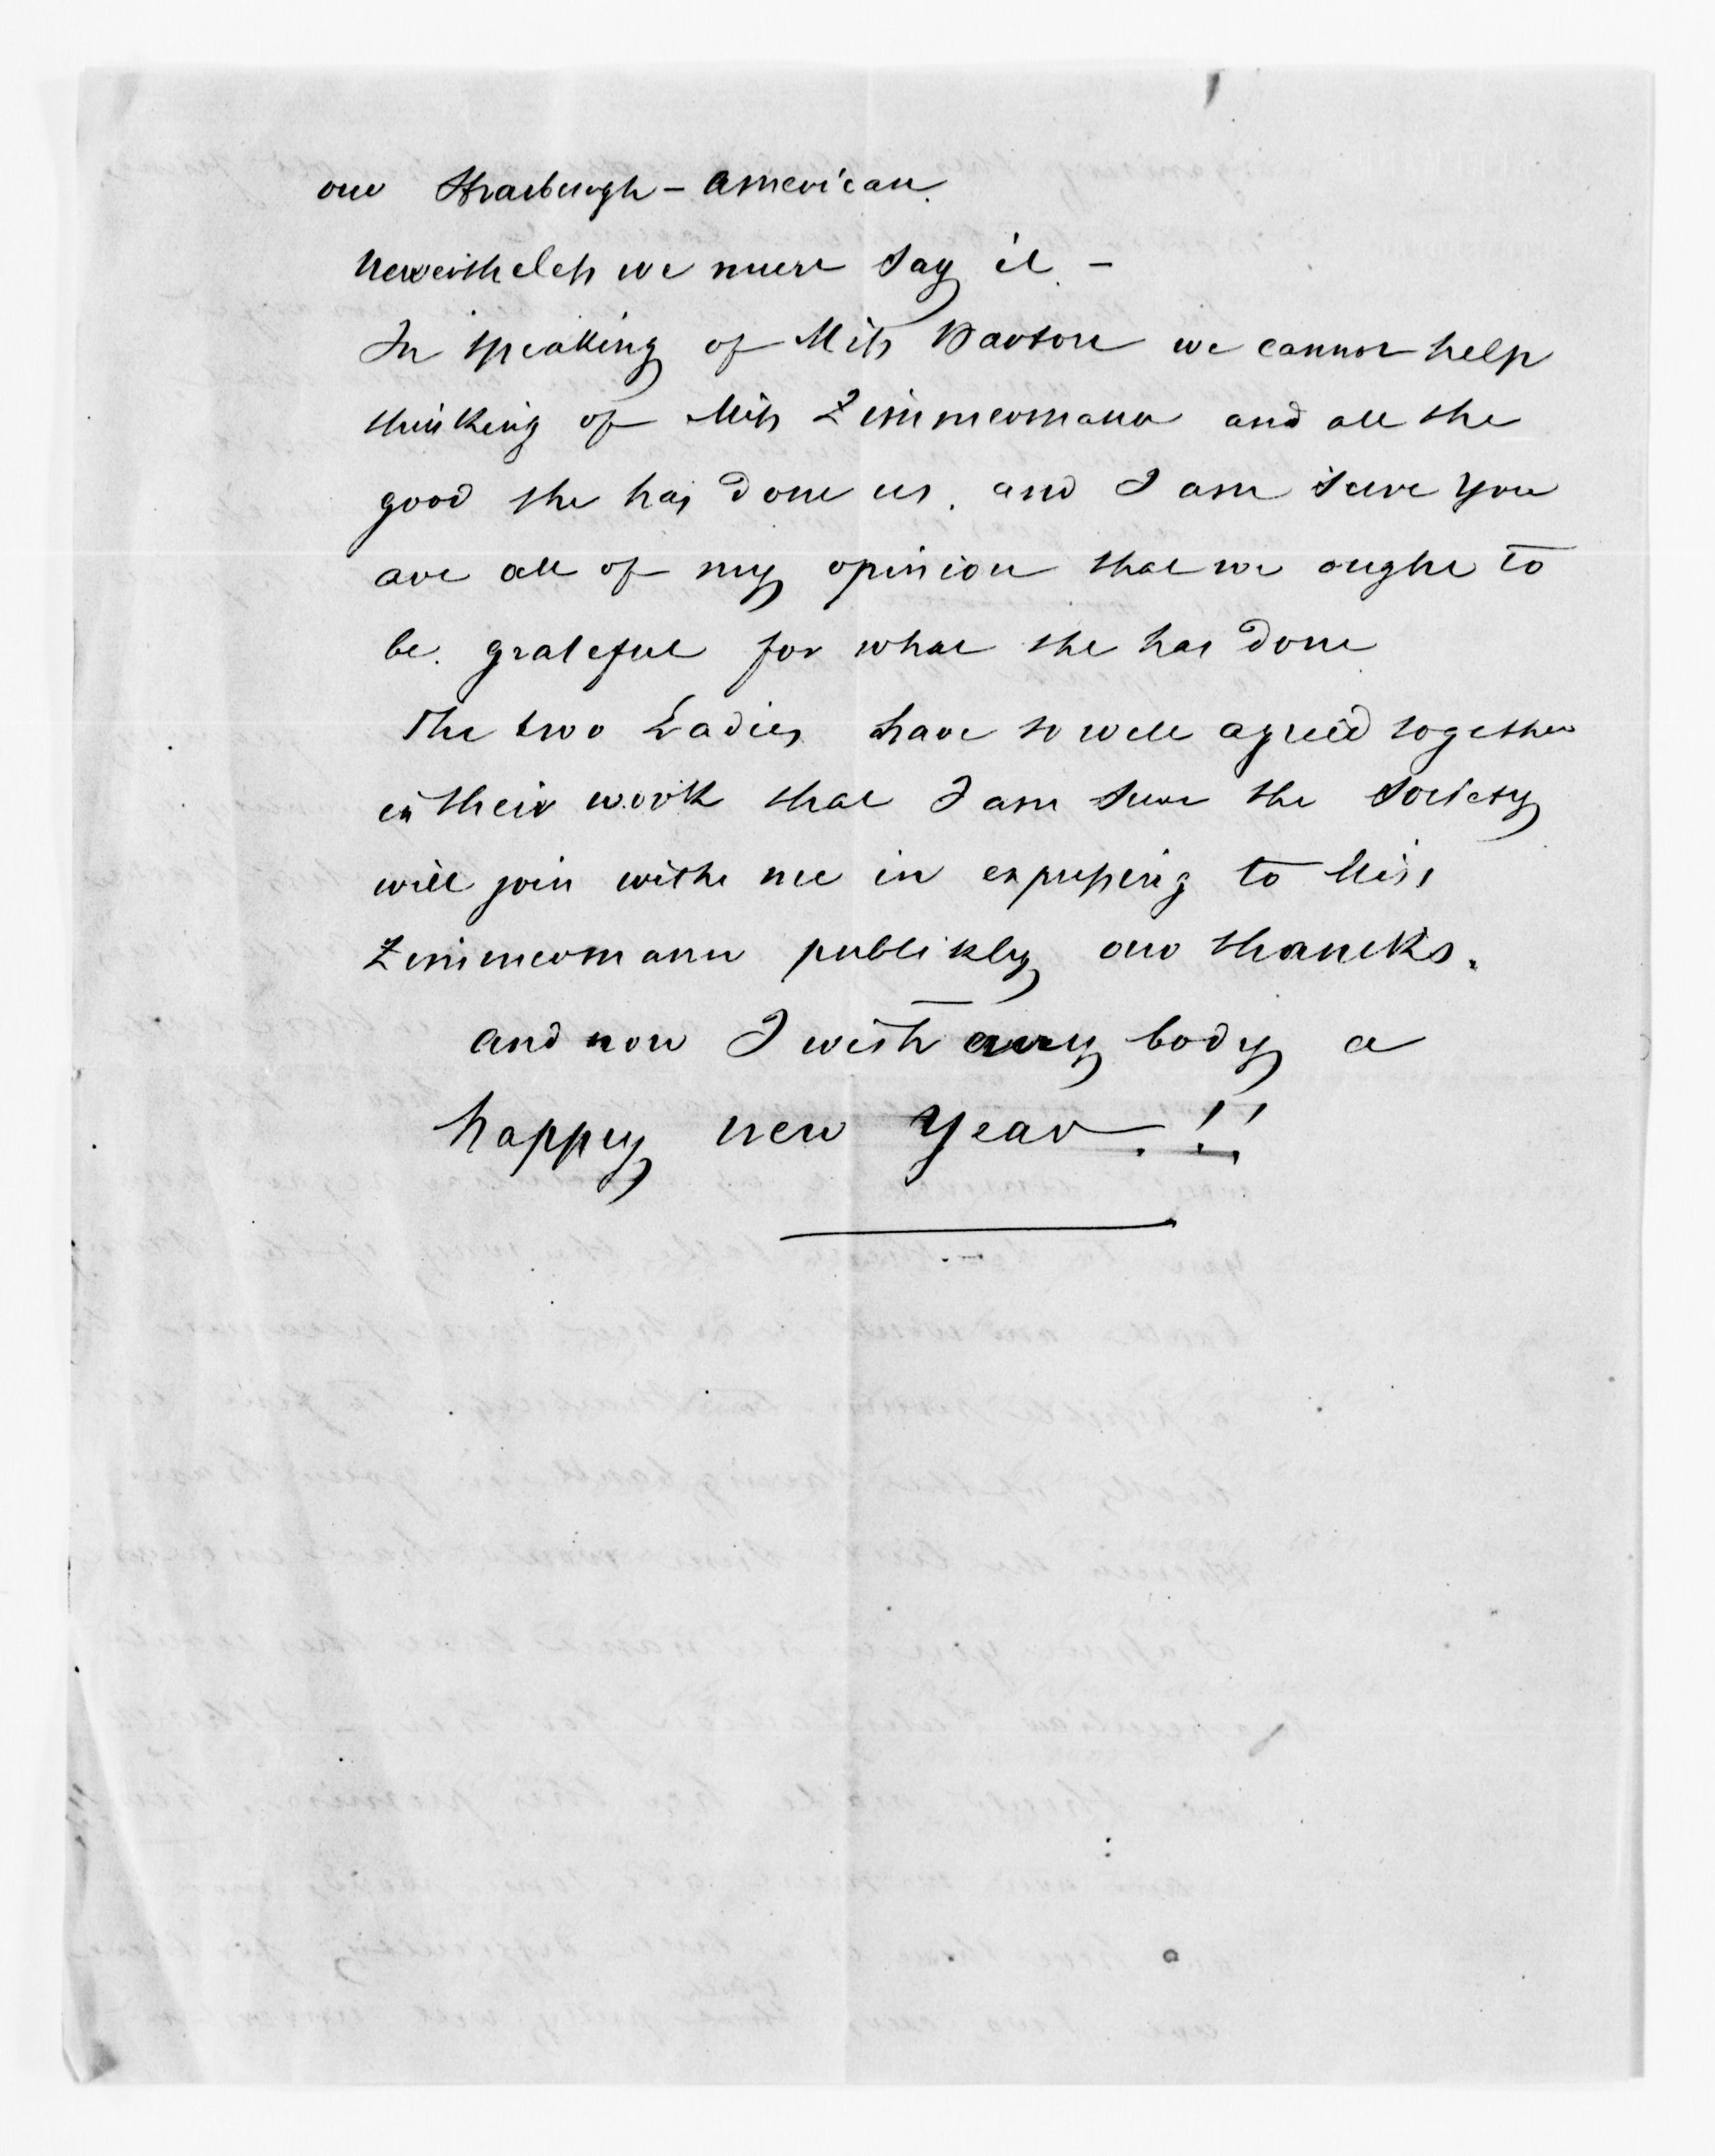 our Strasburgh - American.
Neverthelefs we must say it. -
In speaking of Mifs Barton we cannot help
thinking of Mifs Zimmermann and all the
good she has done us. and I am sure you
are all of my opinion that we ought to
be. grateful for what she has done
The two Ladies have so well agreed together
in their work that I am sure the Society
will join with me in exprefsing to Miss
Zimmermann publikly our thancks.
and now I wish every body a
happy new Year.!!